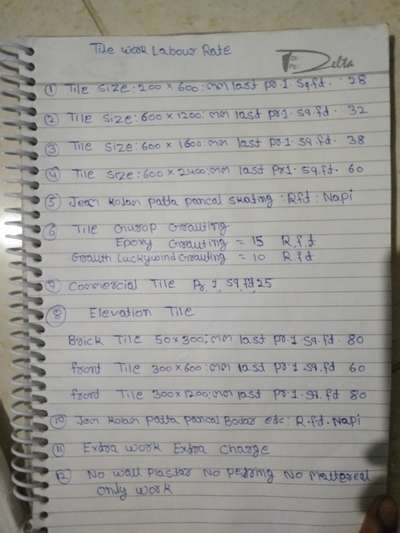 Tile work Labour Rate
Delta
① Tile size: 200 x 600: mm last pr 1 sq.fd. 28
② Tile size: 600 x 1200: mm last pr 1. sq.fd. 32
③ Tile size: 600 x 1600: mm last pr 1. sq.fd. 38
④ Tile size: 600 x 2400: mm last pr 1. sq.fd. 60
⑤ Jean kolan patta pancal skating: R.fd: Napi
⑥ Tile Grouting
Epoxy Grouting = 15 R.f.d
Grouth Luckywind Grouting = 10 R.fd
⑦ Commercial Tile Pr 1, sq,fd,25
⑧ Elevation Tile
Brick Tile 50x300: mm last pr.1 sq. 80
front Tile 300x600: mm last pr 1 sq. fd 60
front Tile 300x1200: mm last pr 1. sq. fd 80
⑩ Jean kolan patta pancal Bodar etc: R.fd. Napi
⑪ Extra work Extra charge
⑫ No wall plastar No No mattereal
only work